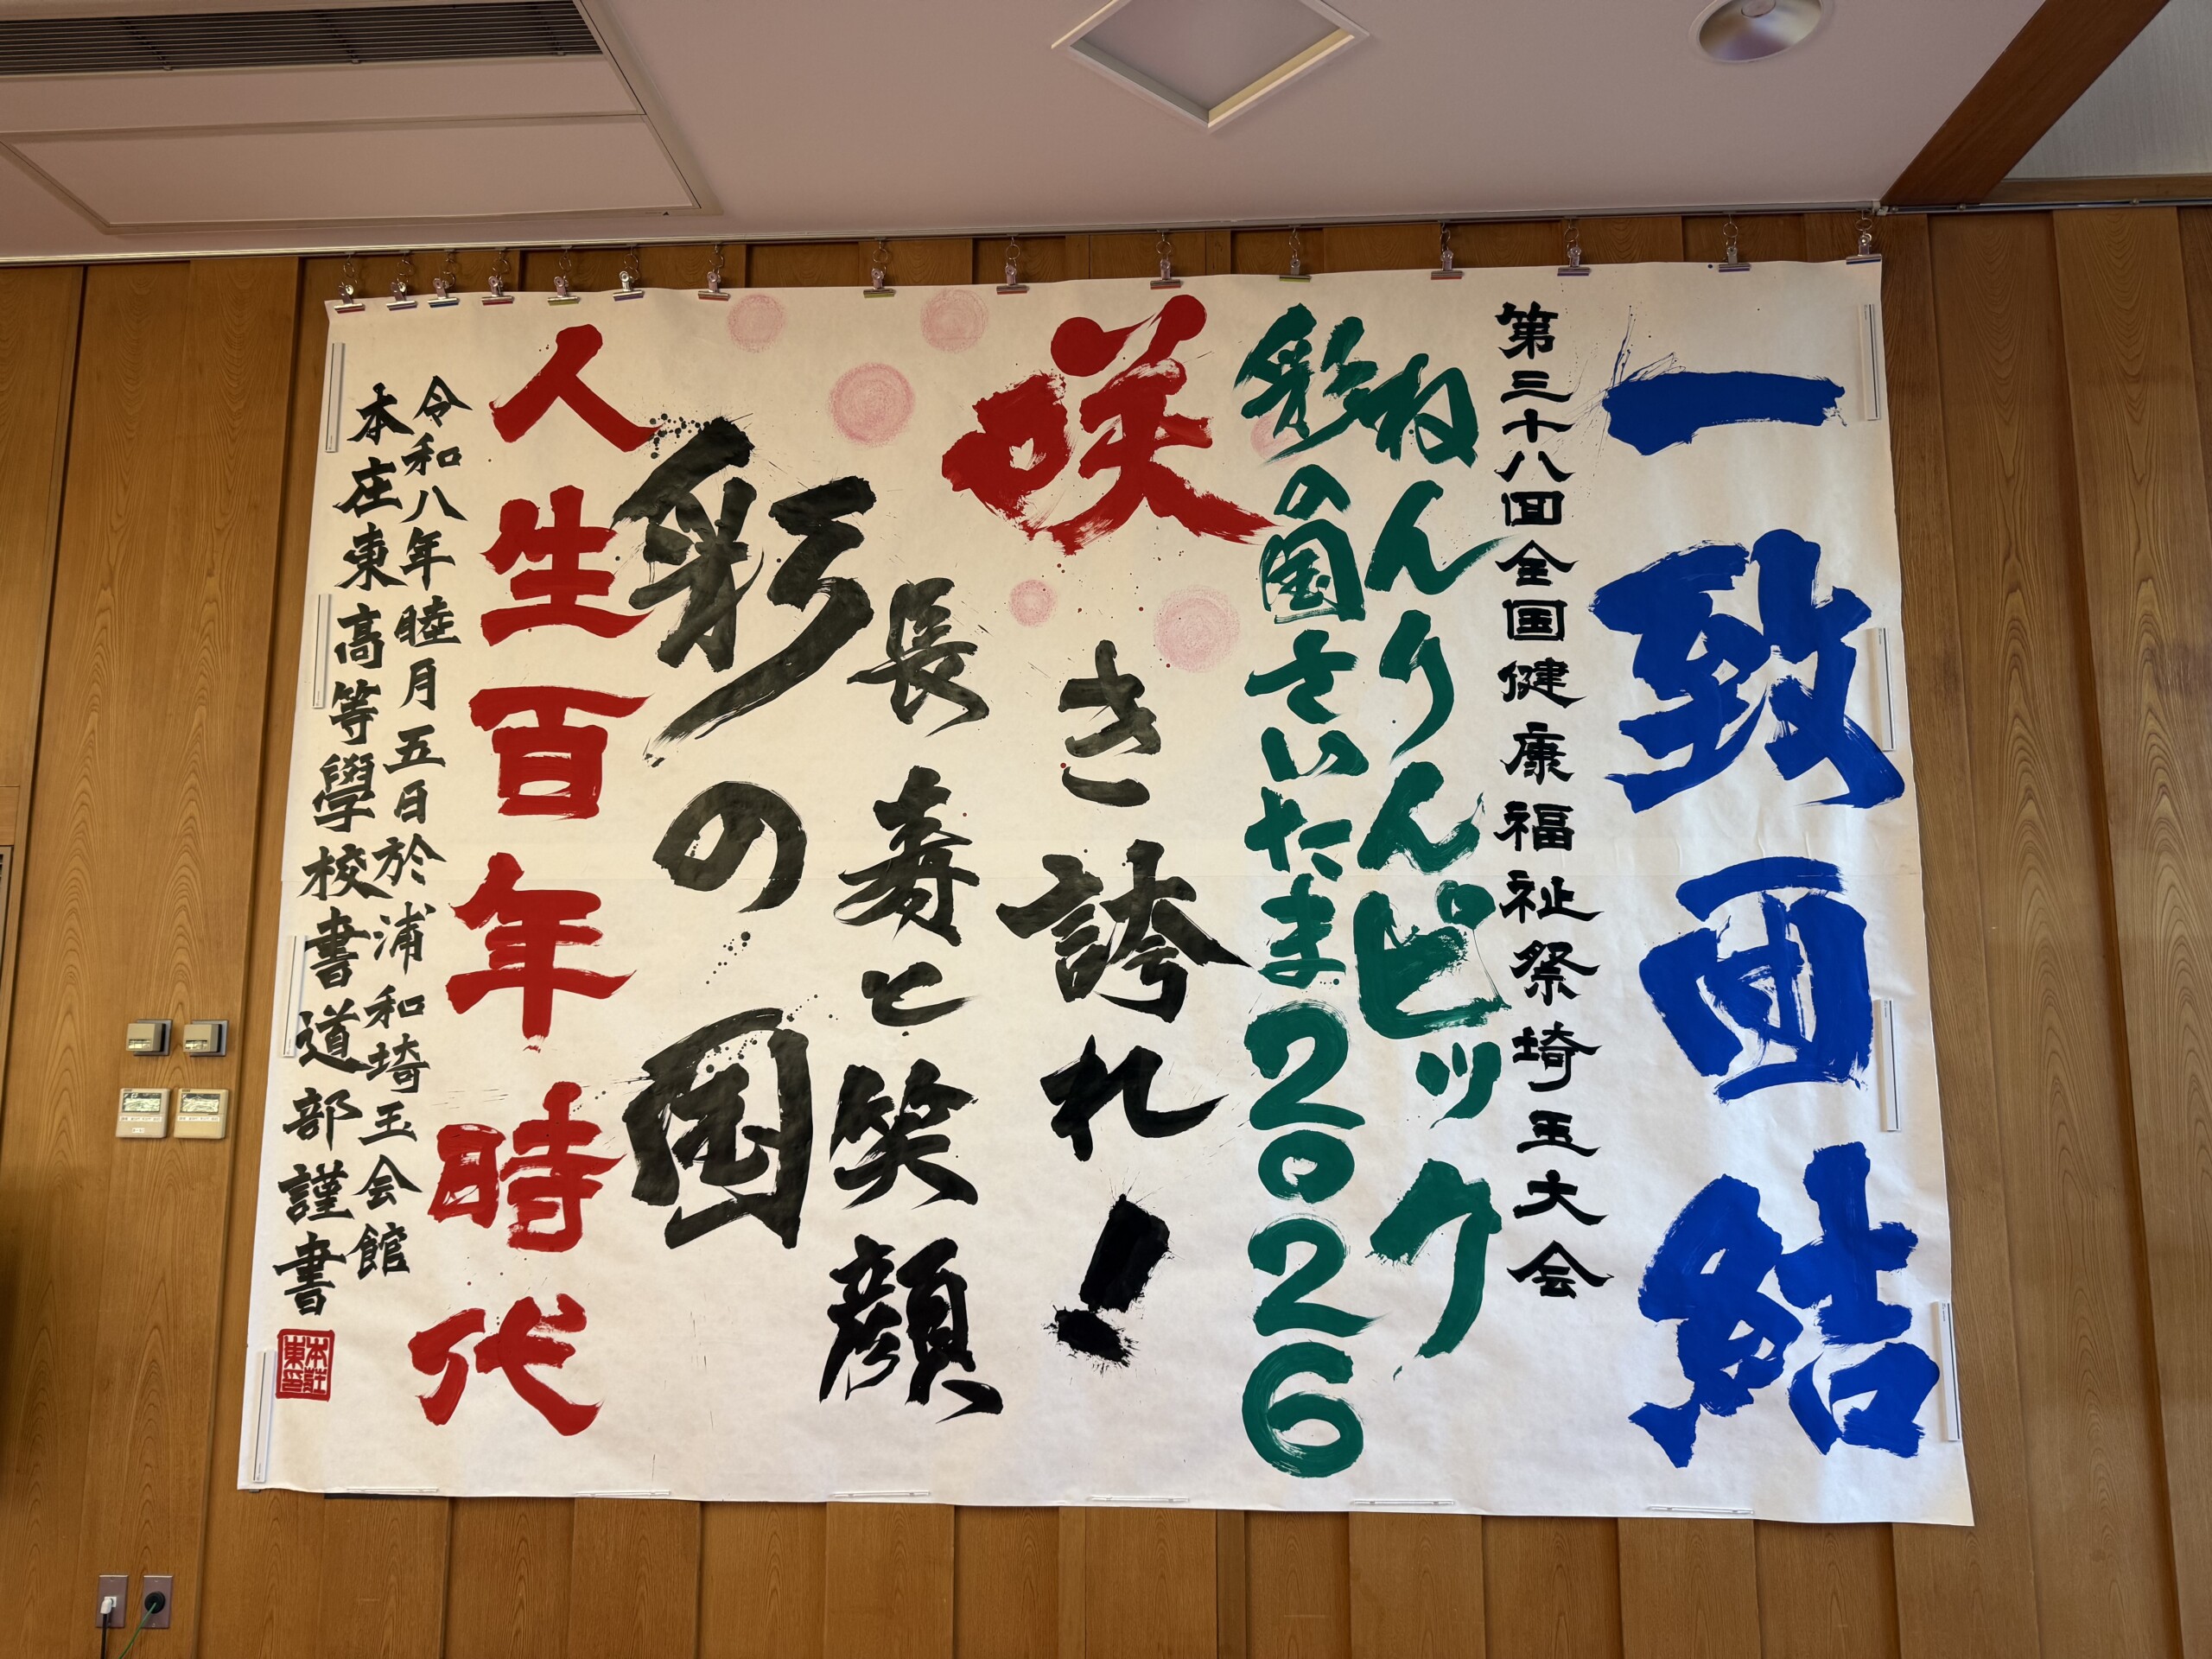 一致団結
第三十八回全国健康福祉祭埼玉大会
ねんりんピック
彩の国さいたま2026
咲き誇れ!
長寿と笑顔
彩の国
人生百年時代
令和八年睦月五日於浦和埼玉会館
本庄東高等學校書道部謹書